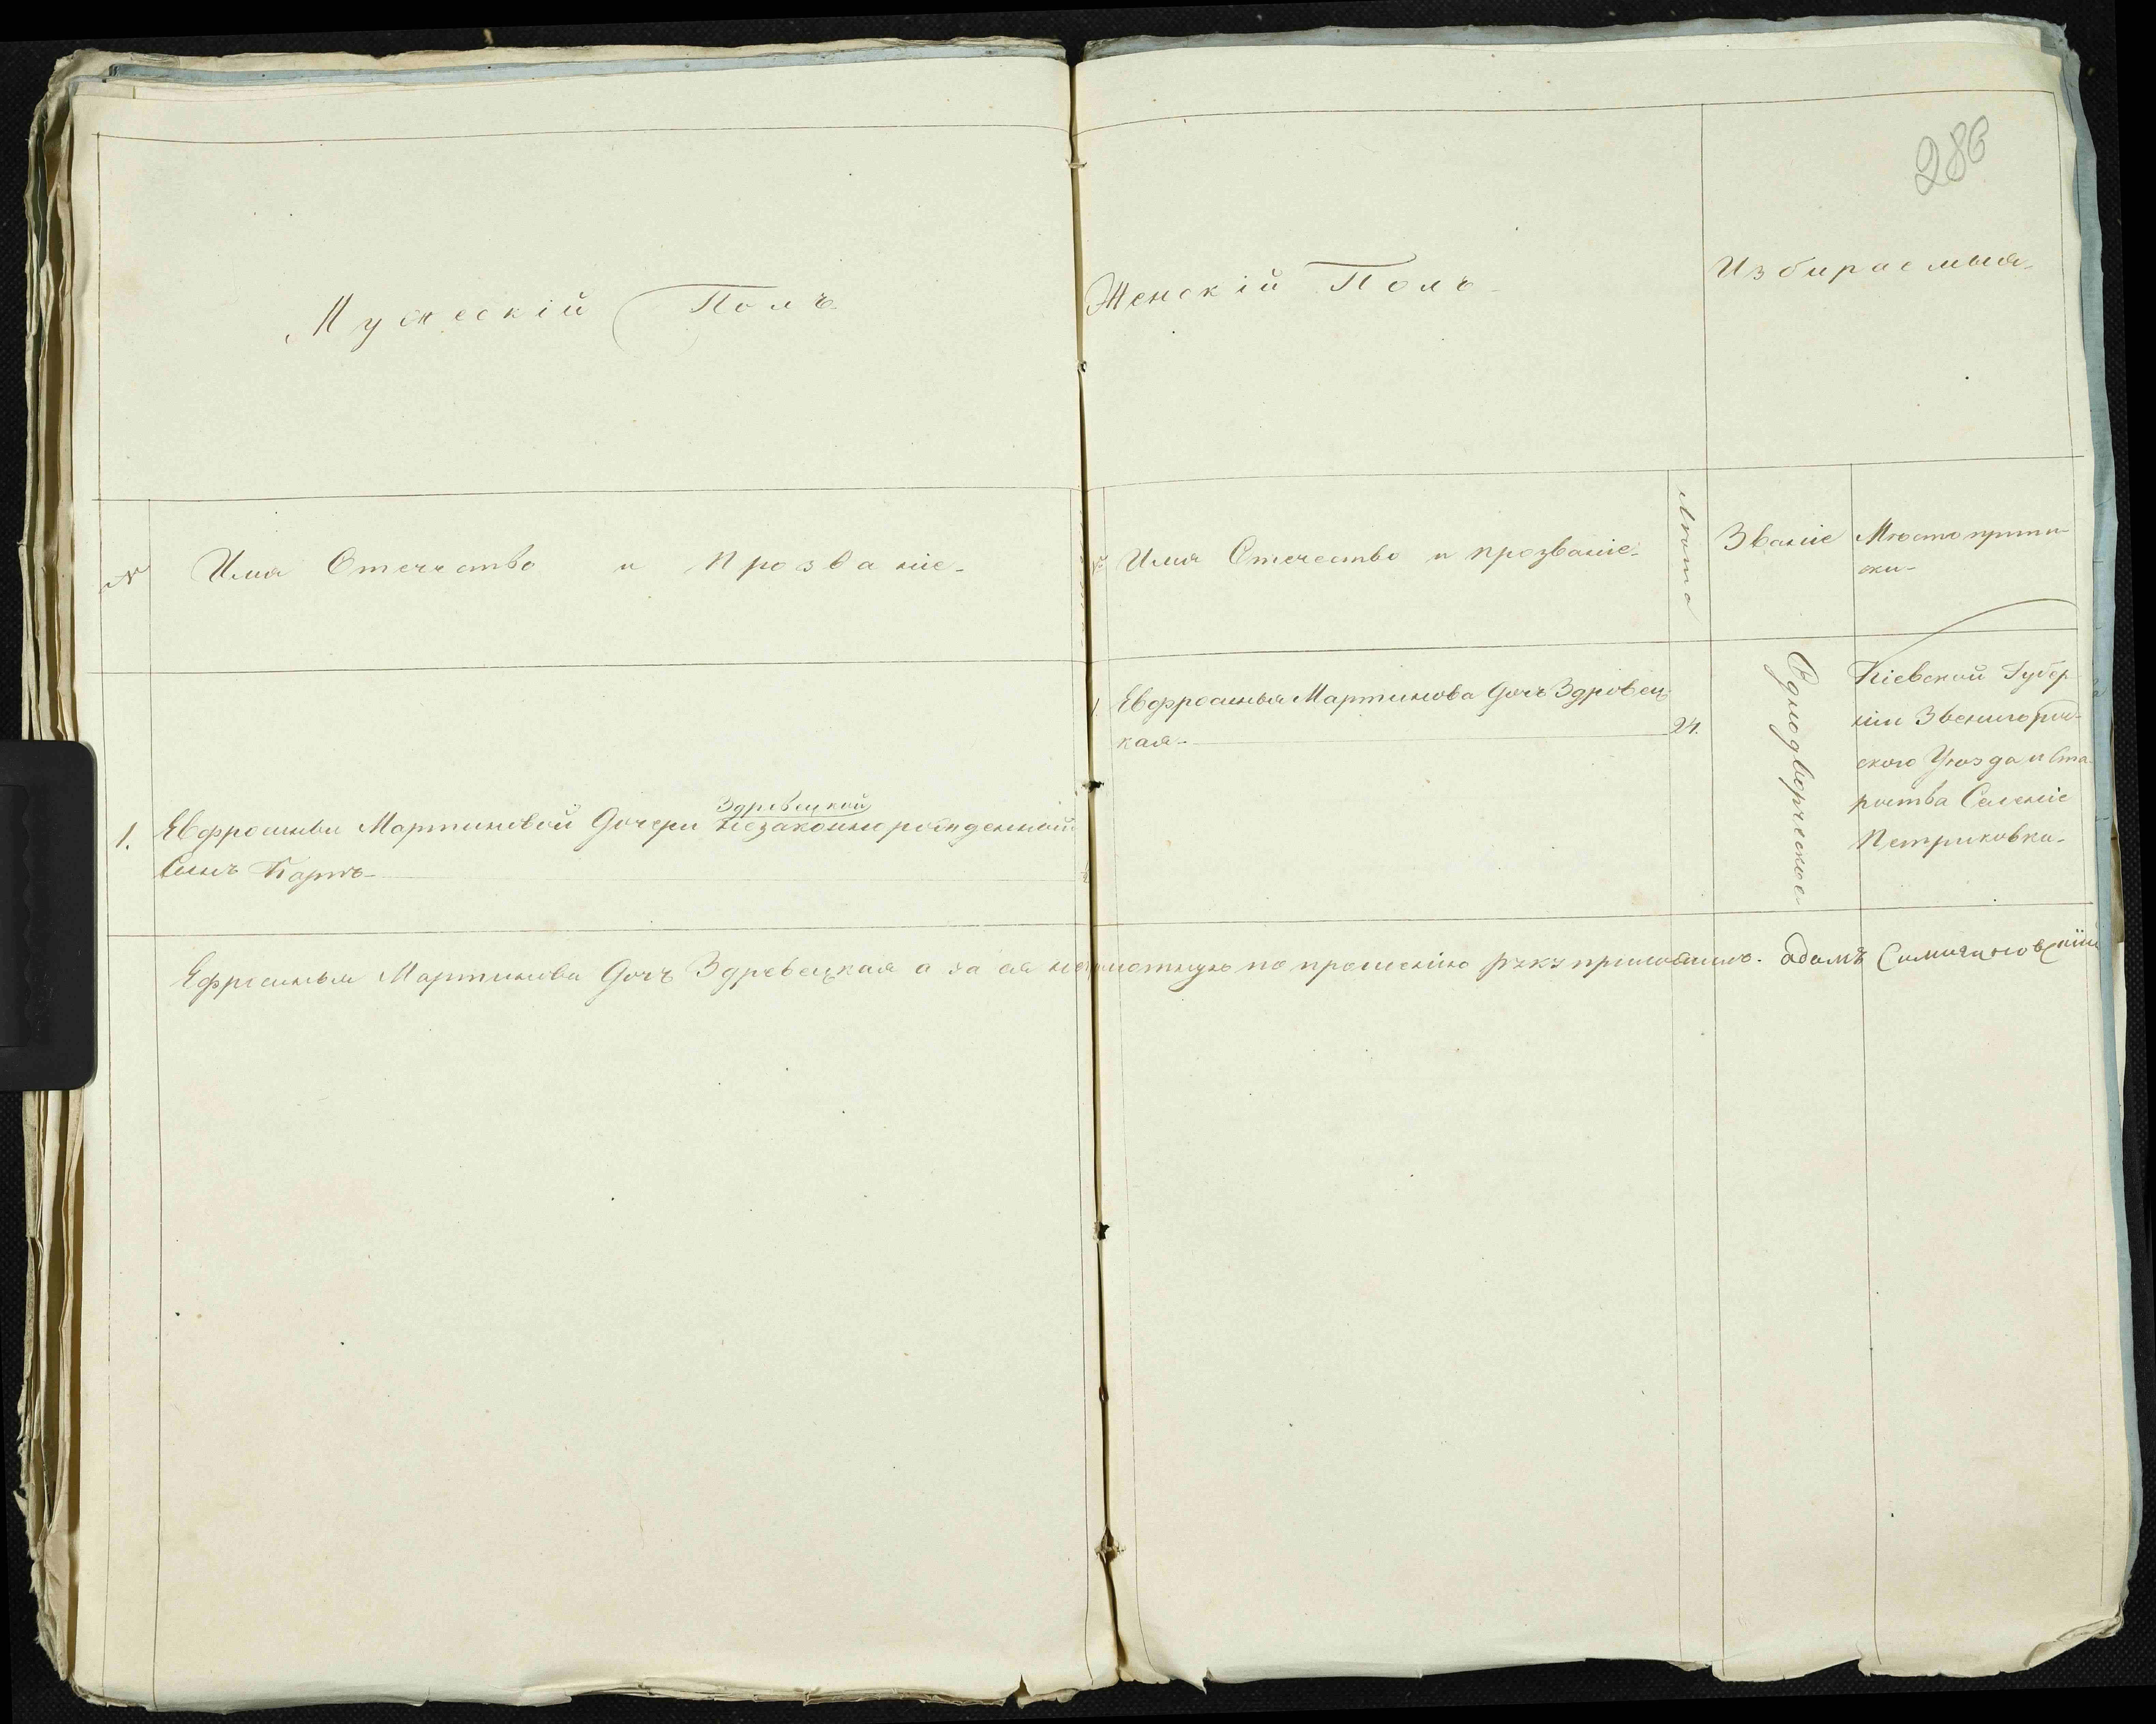 286
Мужескій Полъ
Женскій Полъ
Избираемыя
№ Имя Отечество и Прозваніе
№ Имя Отечество и прозваніе
Лѣта
Званіе
Мѣсто припи-
ски
1. Евфросиньи Мартиновой дочери незаконнорожденный
Здревецкой
Сынъ Карпъ
1. Евфросинья Мартинова дочь Здревец
кая 24.
Однодворческое
Кіевской Губер
ніи Звенигород-
ского Уѣзда и Ста
роства Селеніе
Петриковки
Ефросинья Мартинова дочь Здревецкая а за ея неграмотную по прошенію руку приложилъ Адамъ